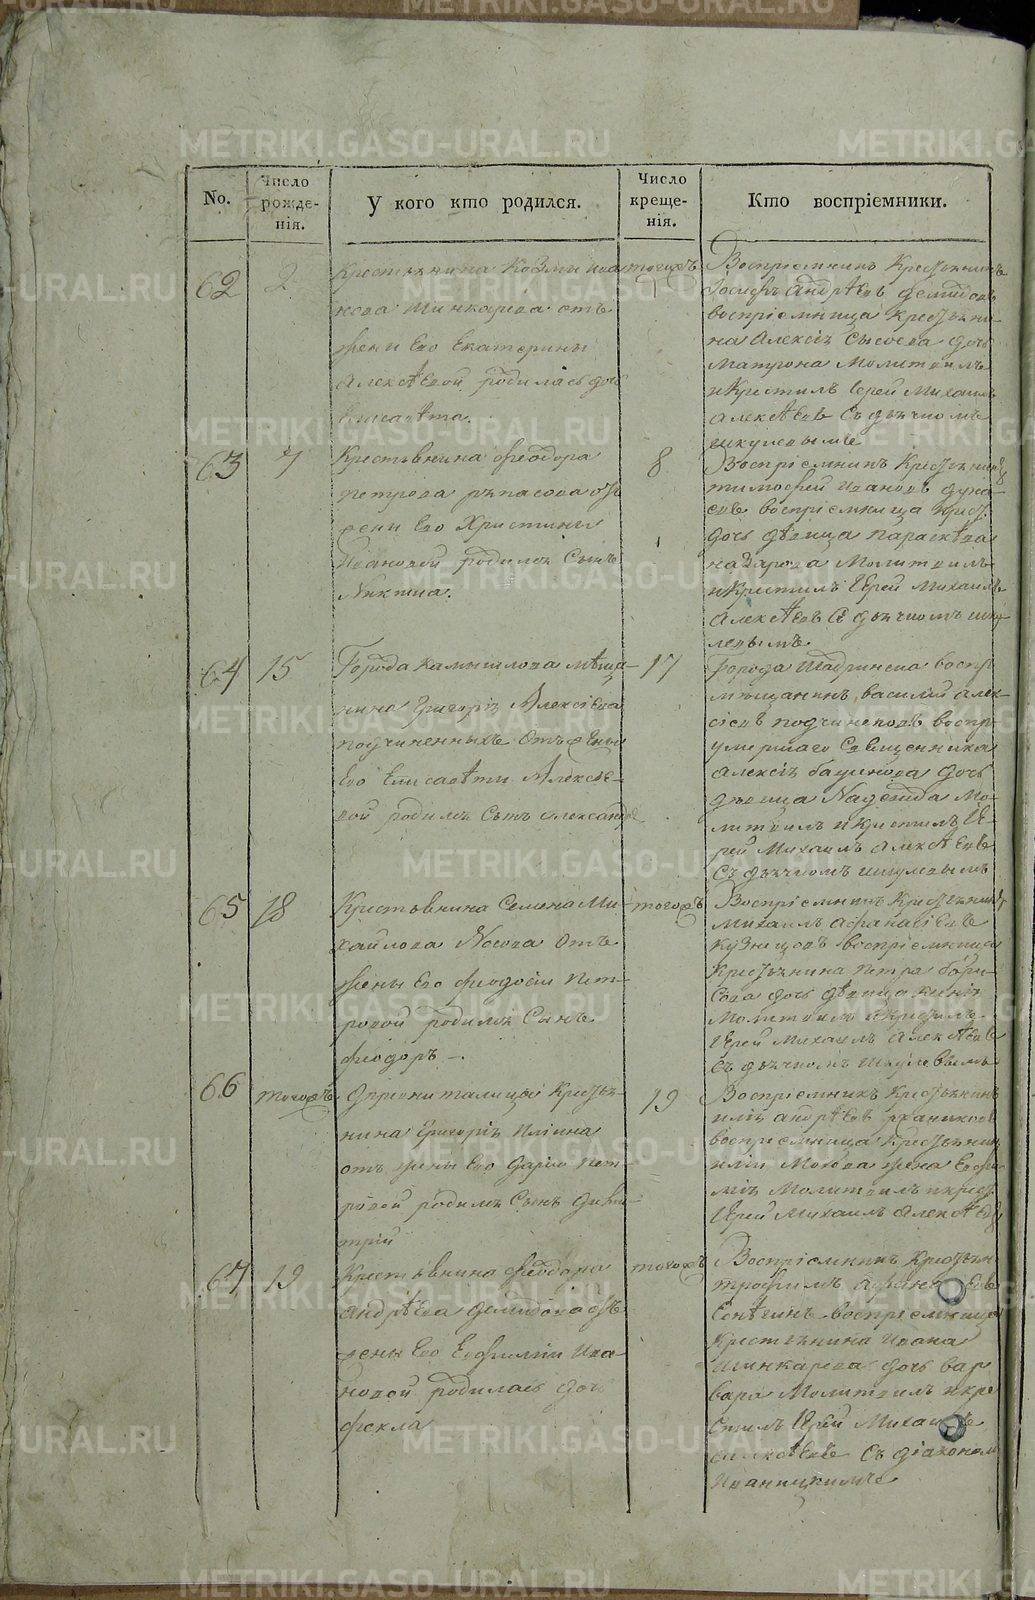 No.
Число рожде-нія.
У кого кто родился.
Число креще-нія.
Кто воспріемники.
62
2
Крестьянина Козмы Ива
нова Шинкарева отъ
жены Его Екатерины
Алексѣевой родилась дочь
Елисавѣта.
тогожъ
Воспріемникъ Крестьянинъ
Іосифъ Андрѣевъ Демидовъ
воспріемница Крестьяни-
на Алексія Сысоева дочь
Матрона Молитвилъ
и Крестилъ Іерей Михаилъ
Алексѣевъ Съ дьячкомъ
шкулевымъ
63
7
Крестьянина Феодора
Петрова отъ
жены Его Христины
Ивановой родился Сынъ
Никита.
8
Воспріемникъ Крестьянинъ
тимофей Ивановъ
воспріемница крест.
дочь дѣвица Параскѣва
Молитвилъ
и Крестилъ Іерей Михаилъ
Алексѣевъ Съ дьячкомъ шку-
левымъ
64
15
Города Камышлова мѣща-
нина Григорія Алексіева
подчиненныхъ отъ жены
Его Елисаветы Алексѣе-
вой родился Сынъ Александръ
17
Города Шадринска воспр
мѣщанинъ василий Алек-
сіевъ подчиненовъ воспр
умершаго Священника
Алексія дочь
дѣвица Надежда Мо-
литвилъ и Крестилъ Іе-
рей Михаилъ Алексѣевъ
Съ дьячкомъ шкулевымъ
65
18
Крестьянина Семена Ми-
хайлова Носова отъ
жены Его Феодосіи Пет-
ровой родился Сынъ
Феодоръ.
тогожъ
Воспріемникъ Крестьянинъ
Михаилъ Афанасіевъ
Кузнецовъ воспріемница
Крестьянина Петра Бори-
сова дочь дѣвица Ксенія
Молитвилъ и Крестилъ
Іерей Михаилъ Алексѣевъ
Съ дьячкомъ Шкулевымъ
66
тогожъ
Деревни талицы Крестья-
нина Григорія Иліина
отъ жены Его Дарьи Пет-
ровой родился Сынъ Дими-
трій
19
Воспріемникъ Крестьянинъ
илія Андрѣевъ
воспріемница Крестьянин
иліи Мохова жена Евфи-
мія Молитвилъ и крест.
Іерей Михаилъ Алексѣевъ
67
19
Крестьянина Феодора
Андрѣева Демидова отъ
жены Его Евфиміи Ива-
новой родилась дочь
Фекла
тогожъ
Воспріемникъ Крестьян
трофимъ
воспріемница
Крестьянина Ивана
Шинкарева дочь Вар
вара Молитвилъ и кре
стилъ Іерей Михаилъ
Алексѣевъ Съ діакономъ
Иваницкимъ
METRIKI.GASO-URAL.RU